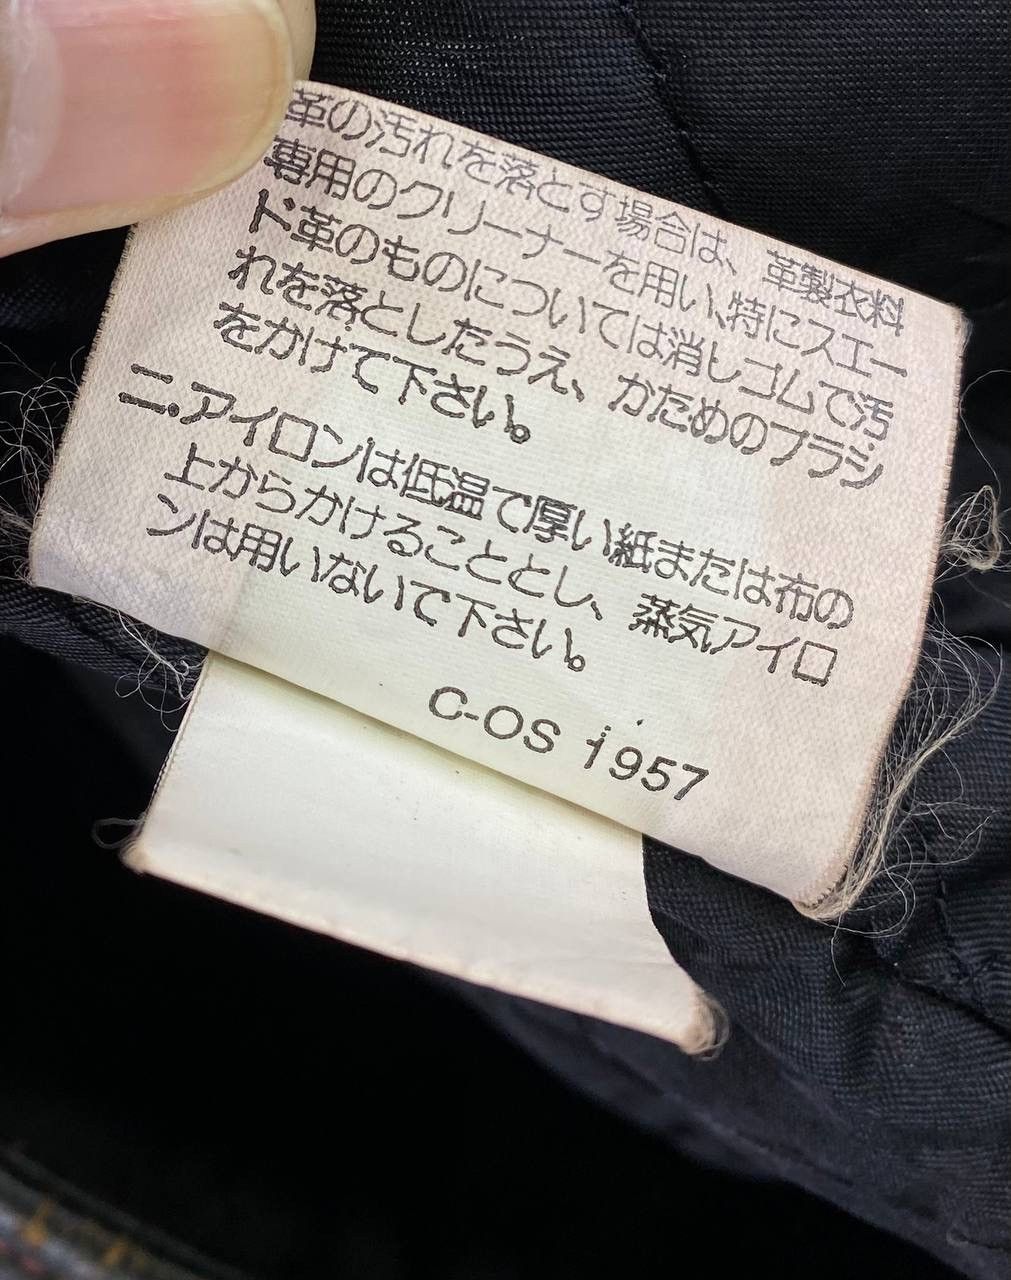 革の汚れを落とす場合は、革製衣料
専用のクリーナーを用い、特にスエー
ド革のものについては消しゴムで汚
れを落としたうえ、かためのブラシ
をかけて下さい。
二.アイロンは低温で厚い紙または布の
上からかけることとし、蒸気アイロ
ンは用いないで下さい。
C-OS 1957